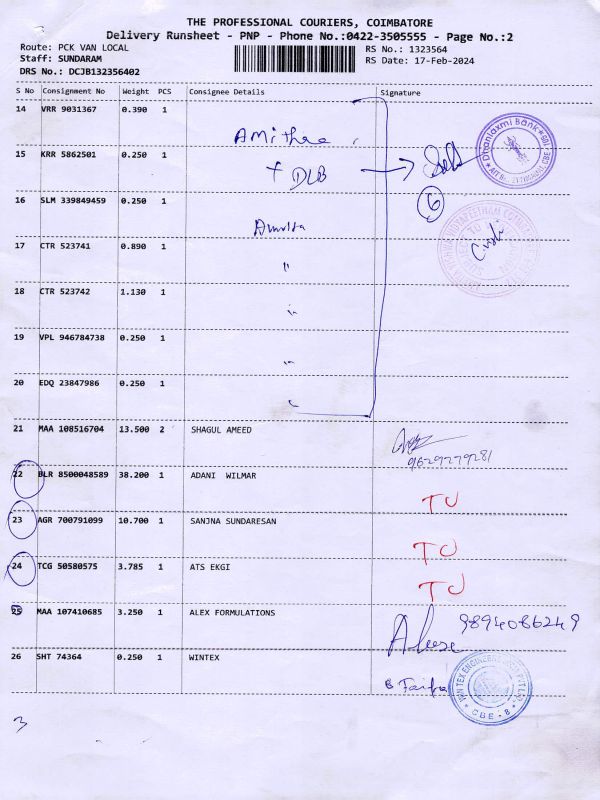 THE PROFESSIONAL COURIERS, COIMBATORE
Delivery Runsheet - PNP - Phone No.:0422-3505555 - Page No.:2
Route: PCK VAN LOCAL
RS No.: 1323564
Staff: SUNDARAM
RS Date: 17-Feb-2024
DRS No.: DCJB132356402
S No Consignment No Weight PCS Consignee Details Signature
14 VRR 9031367 0.390 1
15 KRR 5862501 0.250 1
+ DLB
6
16 SLM 339849459 0.250 1
Amrita
17 CTR 523741 0.890 1
"
18 CTR 523742 1.130 1
"
19 VPL 946784738 0.250 1
"
20 EDQ 23847986 0.250 1
21 MAA 108516704 13.500 2 SHAGUL AMEED
9629279281
22 BLR 8500048589 38.200 1 ADANI WILMAR
TU
23 AGR 700791099 10.700 1 SANJNA SUNDARESAN
TU
24 TCG 50580575 3.785 1 ATS EKGI
TU
25 MAA 107410685 3.250 1 ALEX FORMULATIONS
9894086249
26 SHT 74364 0.250 1 WINTEX
CBE - 8
3
Dhanlaxmi Bank